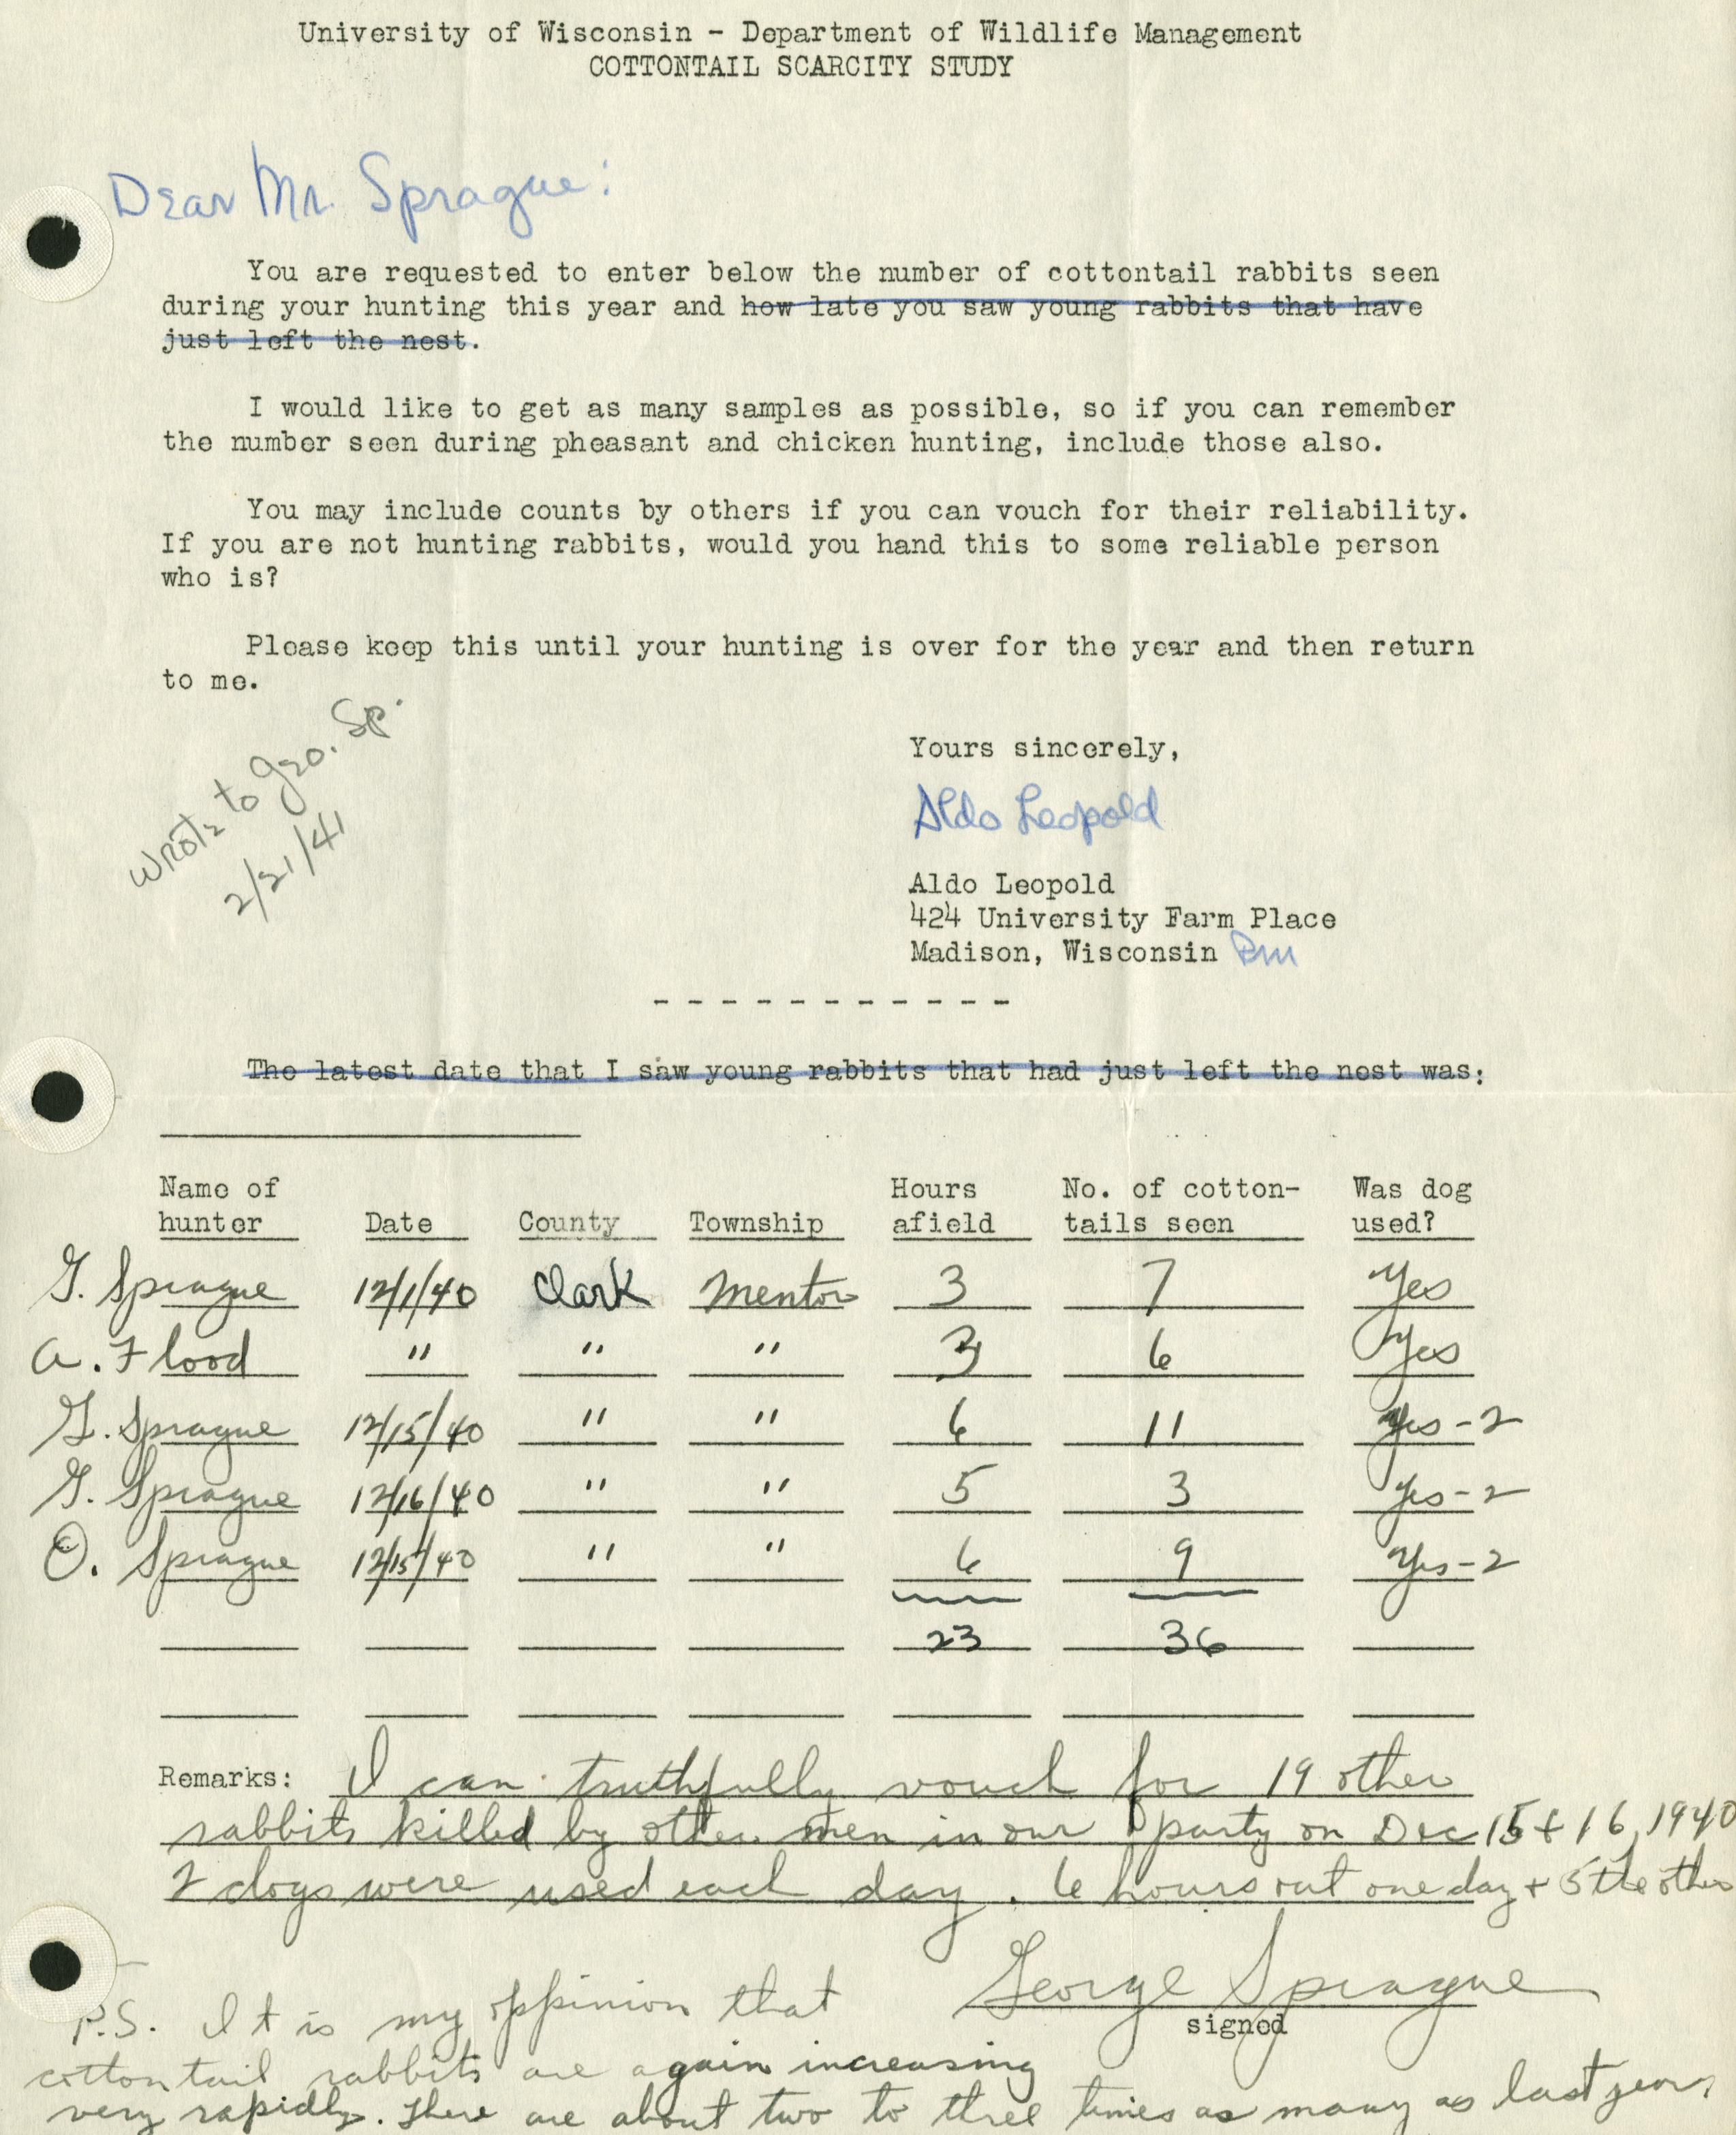 University of Wisconsin - Department of Wildlife Management
COTTONTAIL SCARCITY STUDY
Dear Mr. Sprague:
You are requested to enter below the number of cottontail rabbits seen
during your hunting this year and how late you saw young rabbits that have
just left the nest.
I would like to get as many samples as possible, so if you can remember
the number seen during pheasant and chicken hunting, include those also.
You may include counts by others if you can vouch for their reliability.
If you are not hunting rabbits, would you hand this to some reliable person
who is?
Please keep this until your hunting is over for the year and then return
to me.
Wrote to Geo. Sp.
2/21/41
Yours sincerely,
Aldo Leopold
Aldo Leopold
424 University Farm Place
Madison, Wisconsin
- - - - - - - - - - -
The latest date that I saw young rabbits that had just left the nest was:
Name of hunter Date County Township Hours afield No. of cotton-tails seen Was dog used?
G. Sprague 12/1/40 Clark Mentor 3 7 Yes
A. Flood " " " 3 6 Yes
G. Sprague 12/15/40 " " 6 11 Yes - 2
G. Sprague 12/16/40 " " 5 3 Yes - 2
O. Sprague 12/15/40 " " 6 9 Yes - 2
23 36
Remarks: I can truthfully vouch for 19 other
rabbits killed by other men in our party on Dec 15 + 16, 1940
2 dogs were used each day. 6 hours out one day + 5 the other
George Sprague
signed
P.S. It is my oppinion that
cottontail rabbits are again increasing
very rapidly. There are about two to three times as many as last year,